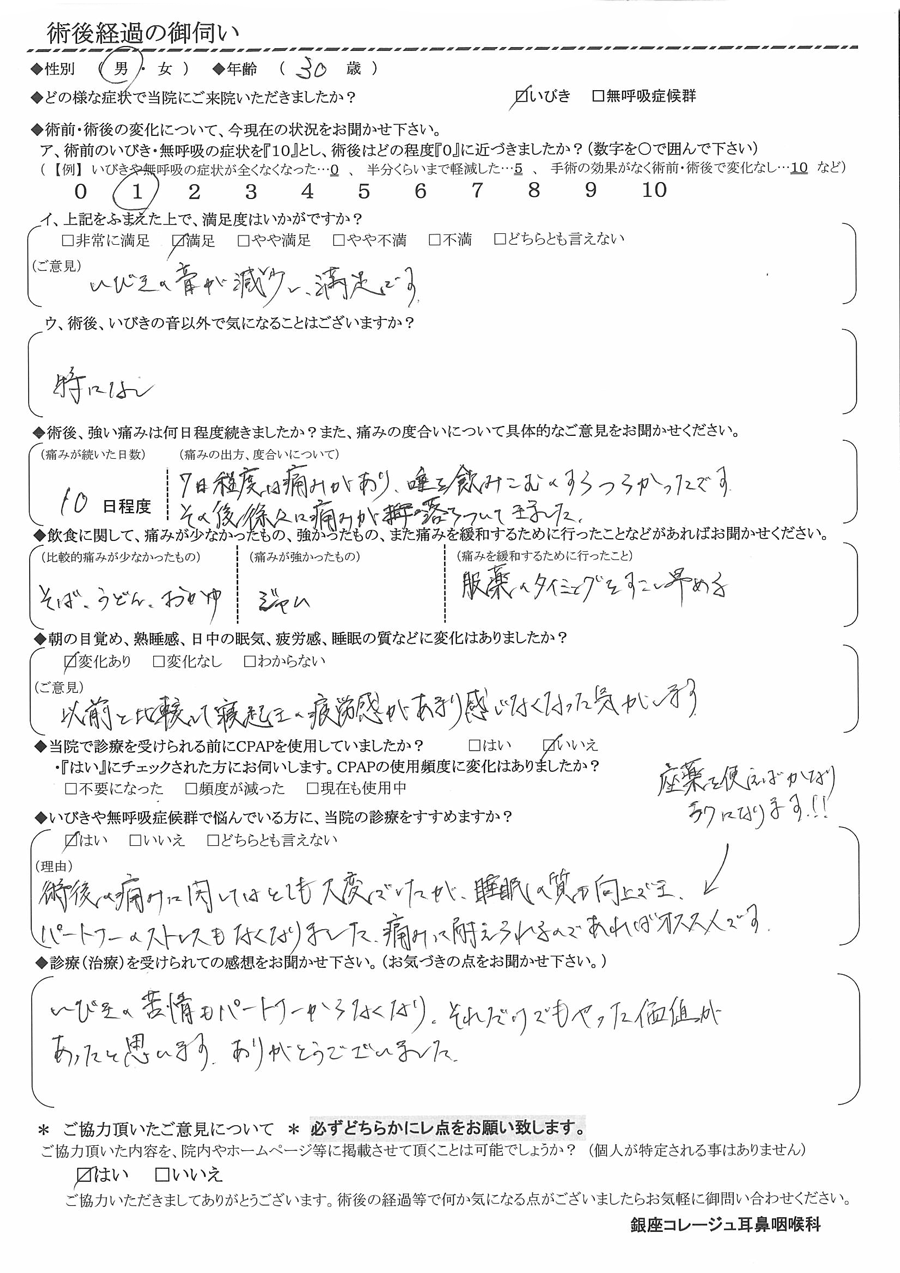 術後経過の御伺い
◆性別 （ 男 ・ 女 ） ◆年齢 （ 30 歳 ）
◆どの様な症状で当院にご来院いただきましたか？ ☑いびき □無呼吸症候群
◆術前・術後の変化について、今現在の状況をお聞かせ下さい。
ア、術前のいびき・無呼吸の症状を『10』とし、術後はどの程度『0』に近づきましたか？（数字を〇で囲んで下さい）
（【例】いびきや無呼吸の症状が全くなくなった…0 、 半分くらいまで軽減した…5 、 手術の効果がなく術前・術後で変化なし…10 など）
0 1 2 3 4 5 6 7 8 9 10
イ、上記をふまえた上で、満足度はいかがですか？
□非常に満足 ☑満足 □やや満足 □やや不満 □不満 □どちらとも言えない
（ご意見）
いびきの音が減少し、満足です。
ウ、術後、いびきの音以外で気になることはございますか？
特になし
◆術後、強い痛みは何日程度続きましたか？また、痛みの度合いについて具体的なご意見をお聞かせください。
（痛みが続いた日数） （痛みの出方、度合いについて）
10 日程度
7日程度は痛みがあり、唾を飲みこむのすらつらかったです。
その後徐々に痛みが落ちついてきました。
◆飲食に関して、痛みが少なかったもの、強かったもの、また痛みを緩和するために行ったことなどがあればお聞かせください。
（比較的痛みが少なかったもの） （痛みが強かったもの） （痛みを緩和するために行ったこと）
そば、うどん、おかゆ ジャム 服薬のタイミングをすこし早める
◆朝の目覚め、熟睡感、日中の眠気、疲労感、睡眠の質などに変化はありましたか？
☑変化あり □変化なし □わからない
（ご意見）
以前と比較して寝起きの疲労感があまり感じなくなった気がします。
◆当院で診療を受けられる前にCPAPを使用していましたか？ □はい ☑いいえ
・『はい』にチェックされた方にお伺いします。CPAPの使用頻度に変化はありましたか？
□不要になった □頻度が減った □現在も使用中
座薬を使えばかなり
ラクになります!!
◆いびきや無呼吸症候群で悩んでいる方に、当院の診療をすすめますか？
☑はい □いいえ □どちらとも言えない
（理由）
術後の痛みに関してはとても大変でしたが、睡眠の質が向上でき、
パートナーのストレスもなくなりました。痛みに耐えられるのであればオススメです。
◆診療（治療）を受けられての感想をお聞かせ下さい。（お気づきの点をお聞かせ下さい。）
いびきの苦情もパートナーからなくなり、それだけでもやった価値が
あったと思います。ありがとうございました。
＊ ご協力頂いたご意見について ＊ 必ずどちらかにレ点をお願い致します。
ご協力頂いた内容を、院内やホームページ等に掲載させて頂くことは可能でしょうか？（個人が特定される事はありません）
☑はい □いいえ
ご協力いただきましてありがとうございます。術後の経過等で何か気になる点がございましたらお気軽に御問い合わせください。
銀座コレージュ耳鼻咽喉科